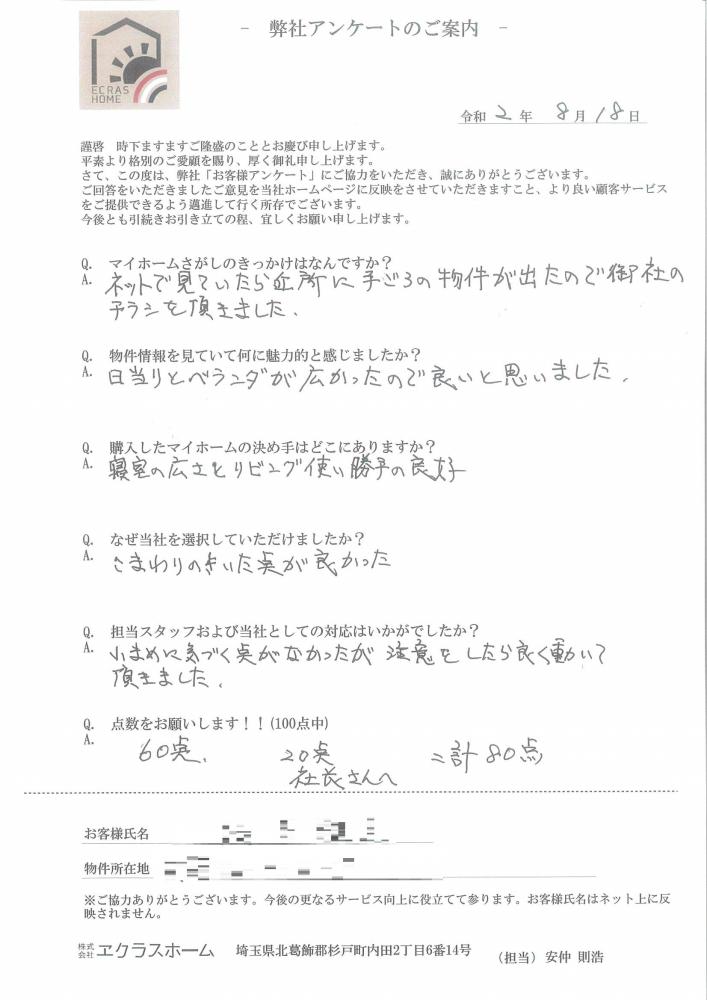 - 弊社アンケートのご案内 -
ECRAS
HOME
令和 2 年 8 月 18 日
謹啓 時下ますますご隆盛のこととお慶び申し上げます。
平素より格別のご愛顧を賜り、厚く御礼申し上げます。
さて、この度は、弊社「お客様アンケート」にご協力をいただき、誠にありがとうございます。
ご回答をいただきましたご意見を当社ホームページに反映をさせていただきますこと、より良い顧客サービス
をご提供できるよう邁進して行く所存でございます。
今後とも引続きお引き立ての程、宜しくお願い申し上げます。
Q. マイホームさがしのきっかけはなんですか？
A. ネットで見ていたら近所に手ごろの物件が出たので御社の
チラシを頂きました.
Q. 物件情報を見ていて何に魅力的と感じましたか？
A. 日当りとベランダが広かったので良いと思いました.
Q. 購入したマイホームの決め手はどこにありますか？
A. 寝室の広さとリビング使い勝手の良好
Q. なぜ当社を選択していただけましたか？
A. こまわりのきいた点が良かった
Q. 担当スタッフおよび当社としての対応はいかがでしたか？
A. 小まめに気づく点がなかったが注意をしたら良く動いて
頂きました.
Q. 点数をお願いします！！(100点中)
A. 60点. 20点 =計80点
社長さんへ
お客様氏名
物件所在地
※ご協力ありがとうございます。今後の更なるサービス向上に役立てて参ります。お客様氏名はネット上に反
映されません。
株式会社 ヱクラスホーム 埼玉県北葛飾郡杉戸町内田2丁目6番14号 （担当）安仲 則浩